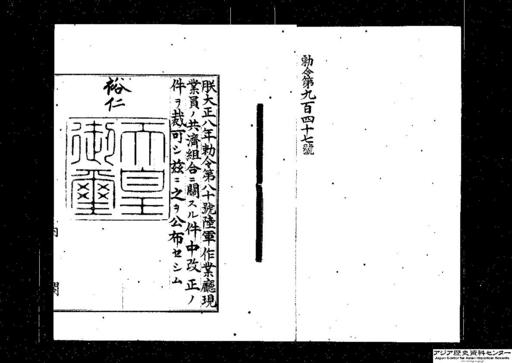 勅令第九百四十七號
朕大正八年勅令第八十號陸軍作業廳現
業員ノ共濟組合ニ關スル件中改正ノ
件ヲ裁可シ玆ニ之ヲ公布セシム
裕仁
天皇
御璽
内閣
アジア歴史資料センター
Japan Center for Asian Historical Records